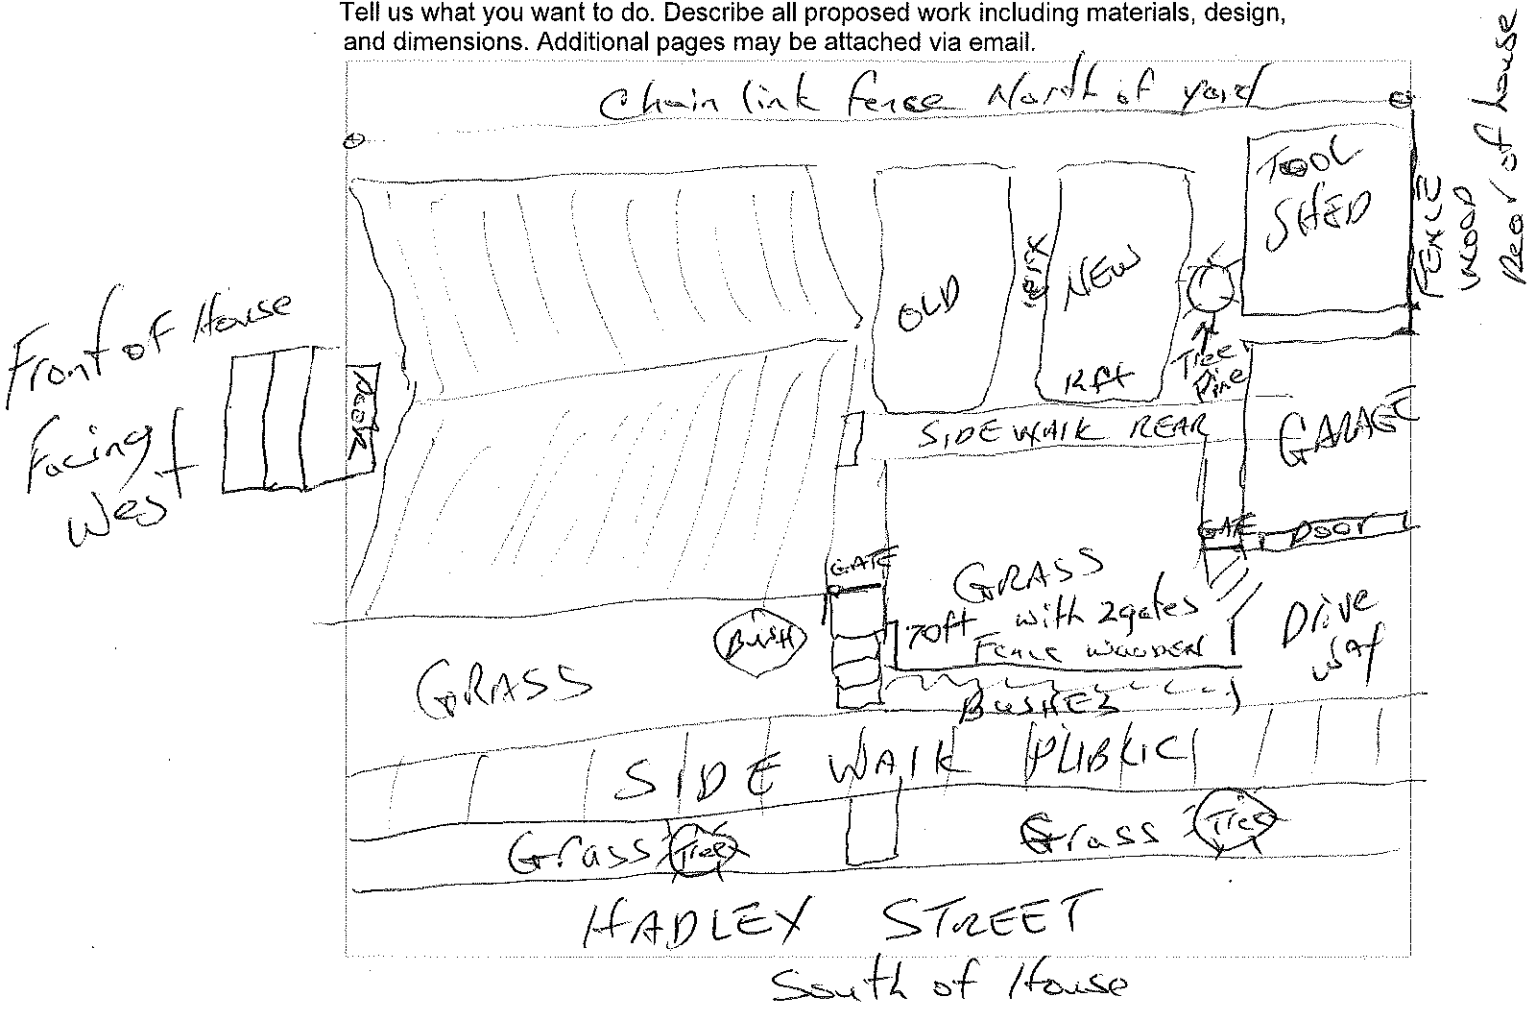 Tell us what you want to do. Describe all proposed work including materials, design,
and dimensions. Additional pages may be attached via email.
Chain link fence North of yard
TOOL
SHED
FENCE
WOOD
Rear of house
OLD
NEW
12ft
Tree
Pine
Front of House
Facing
West
SIDEWALK REAR
GARAGE
GATE
DOOR
GATE
GRASS
with 2 gates
70ft
FENCE WOODEN
Drive
way
BUSH
GRASS
BUSHES
SIDE WALK PUBLIC
Grass
Tree
Grass
Tree
HADLEY STREET
South of House